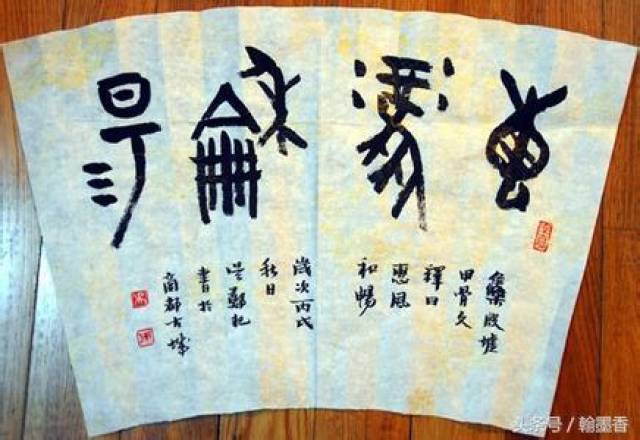 惠風和暢
殷墟
甲骨文
釋曰
惠風
和暢
歲次丙戌
秋日
書於
商都古城
头条号 / 翰墨香